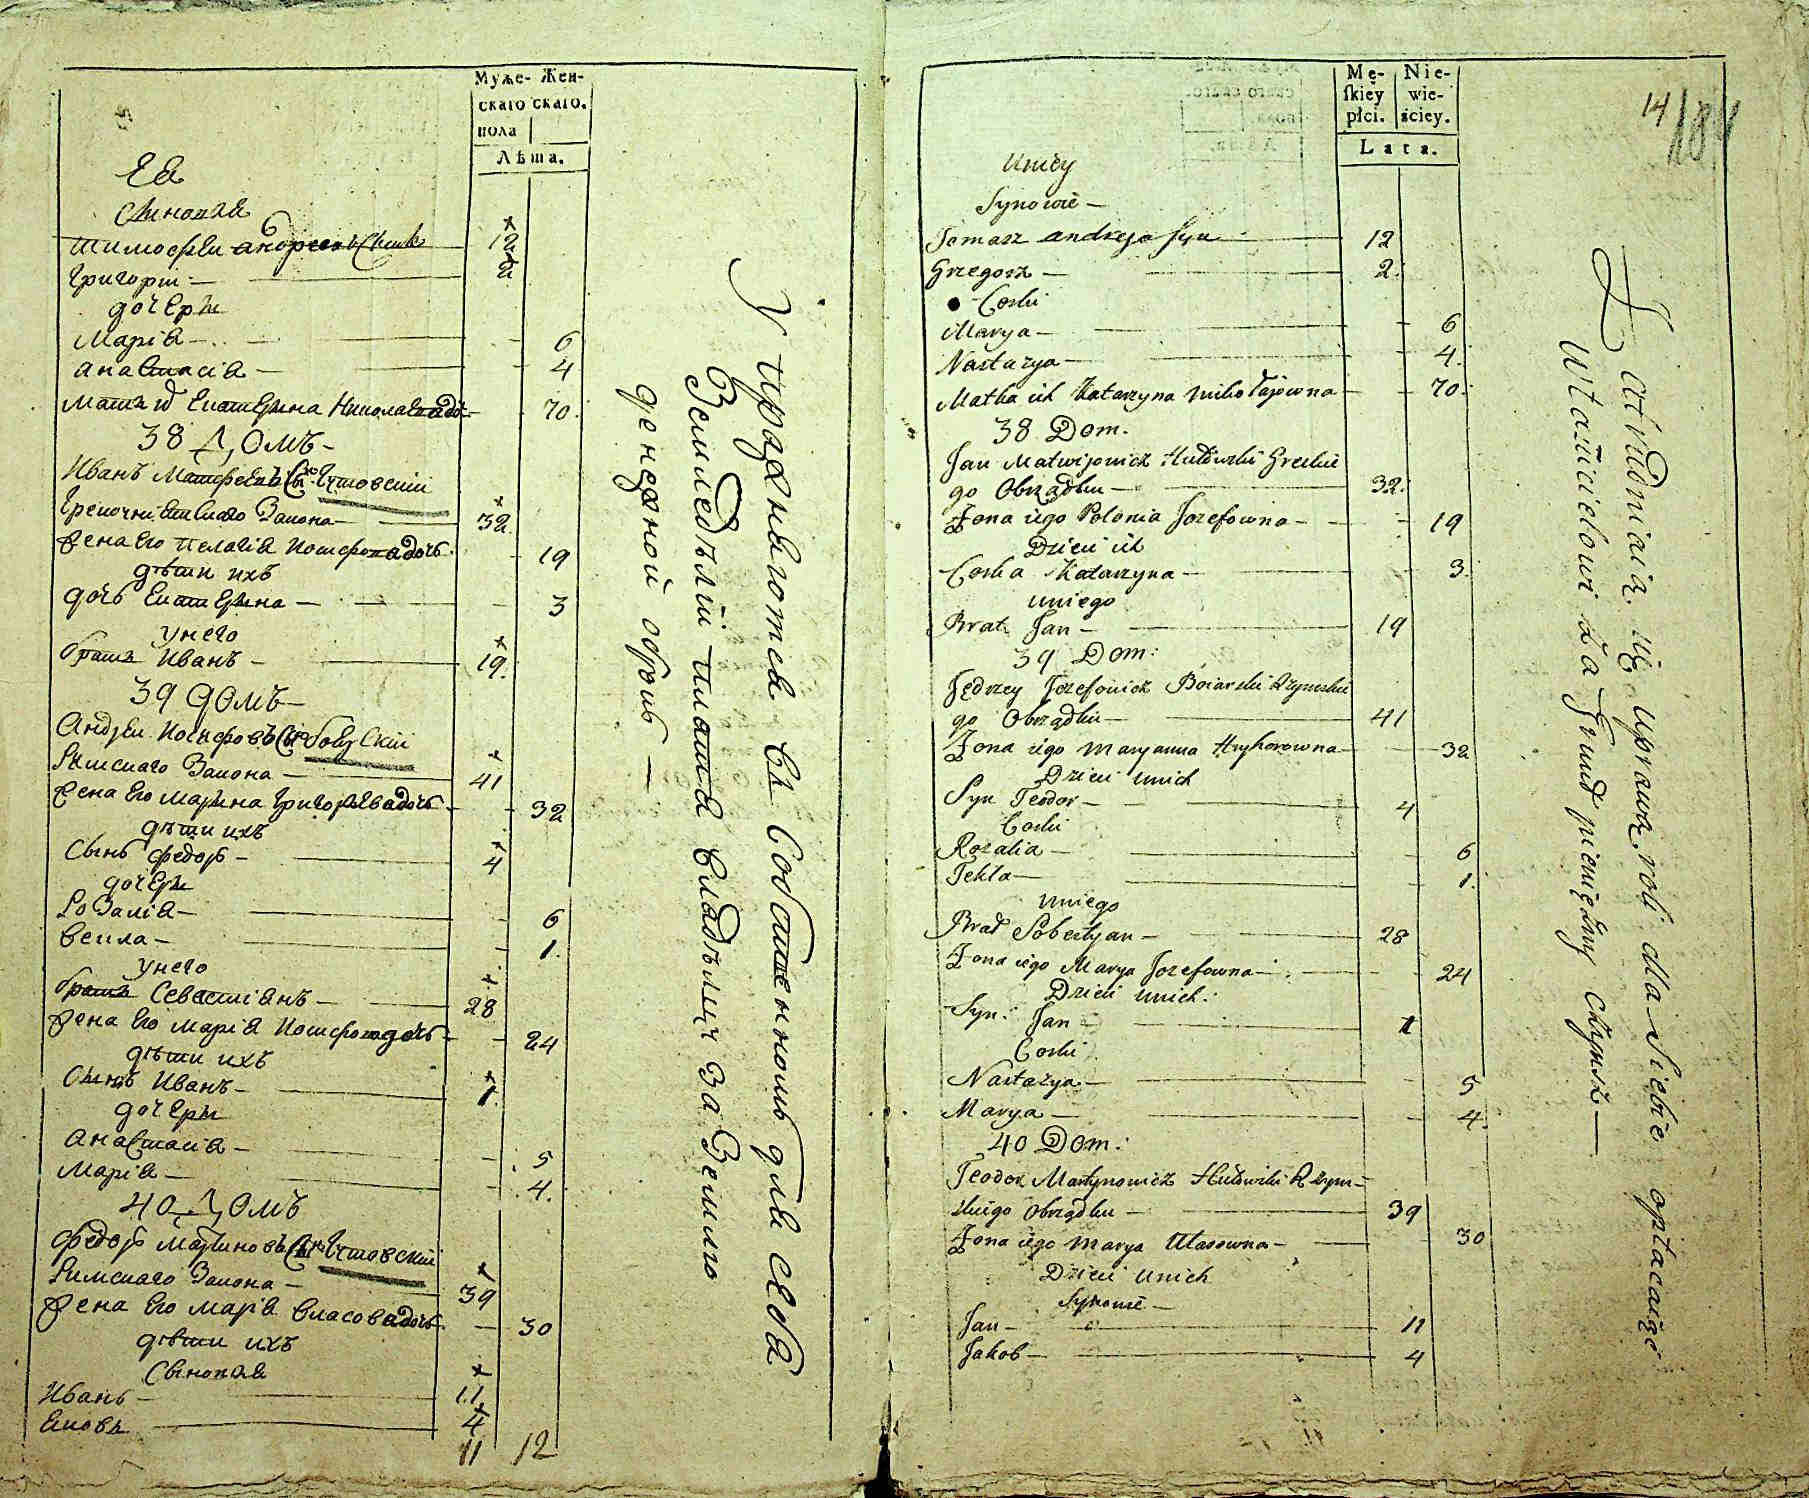 Муже- Жен-
скаго скаго.
пола
Лѣта.
Ея
Сыновья
Тимофеи Андреевъ Сынъ 12
Григории 2
дочери
Мария 6
Анастасия 4
Мать их Екатерина Николаева дочь 70
38 Домъ
Иванъ Матфеевъ Сынъ
Закона 32
Жена Его Пелагия Иосифова дочь 19
дѣти ихъ
дочь Екатерина 3
у него
братъ Иванъ 19
39 домъ
Андреи Иосифовъ Сынъ
Римскаго Закона 41
Жена Его Марина Григорьева дочь 32
дѣти ихъ
Сынъ Федоръ 4
дочери
Розалия 6
Текла 1
у него
братъ Севастианъ 28
Жена Его Мария Иосифова дочь 24
дѣти ихъ
Сынъ Иванъ 1
дочери
Анастасия 5
Мария 4
40 Домъ
Федоръ Мартиновъ Сынъ
Римскаго Закона 39
Жена Его Мария Власова дочь 30
дѣти ихъ
Сыновья
Иванъ 11
Яковъ 4
11 12
Упражняются въ Собственномъ для себя
Земледѣлии платя владѣльцу за Землю
денежной оброкъ
Mę- Nie-
ſkiey wie-
płci. ściey.
Lata.
14
184
Unięy
Synowie
Tomasz Andreja Syn 12
Grzegorz 2
Corki
Marya 6
Nastazya 4
Matka ich Katarzyna Mikołajowna 70
38 Dom
Jan Matwijowicz Hutowski Greckie
go Obrządku 32
Zona iego Polonia Jozefowna 19
Dzieci ich
Corka Katarzyna 3
u niego
Brat Jan 19
39 Dom
Jędrzey Jozefowicz Boiarski Rzymskie
go Obrządku 41
Zona iego Maryanna Hryhorowna 32
Dzieci u nich
Syn Teodor 4
Corki
Rozalia 6
Tekla 1
u niego
Brat Sobestyan 28
Zona iego Marya Jozefowna 24
Dzieci u nich
Syn Jan 1
Corki
Nastazya 5
Marya 4
40 Dom
Teodor Martynowicz Hutowski Rzym-
skiego Obrządku 39
Zona iego Marya Ułasowna 30
Dzieci u nich
Synowie
Jan 11
Jakob 4
Zatrudniaią się uprawą roli dla siebie opłacaiąc
Właścicielowi za Grunt pieniężny Czynsz